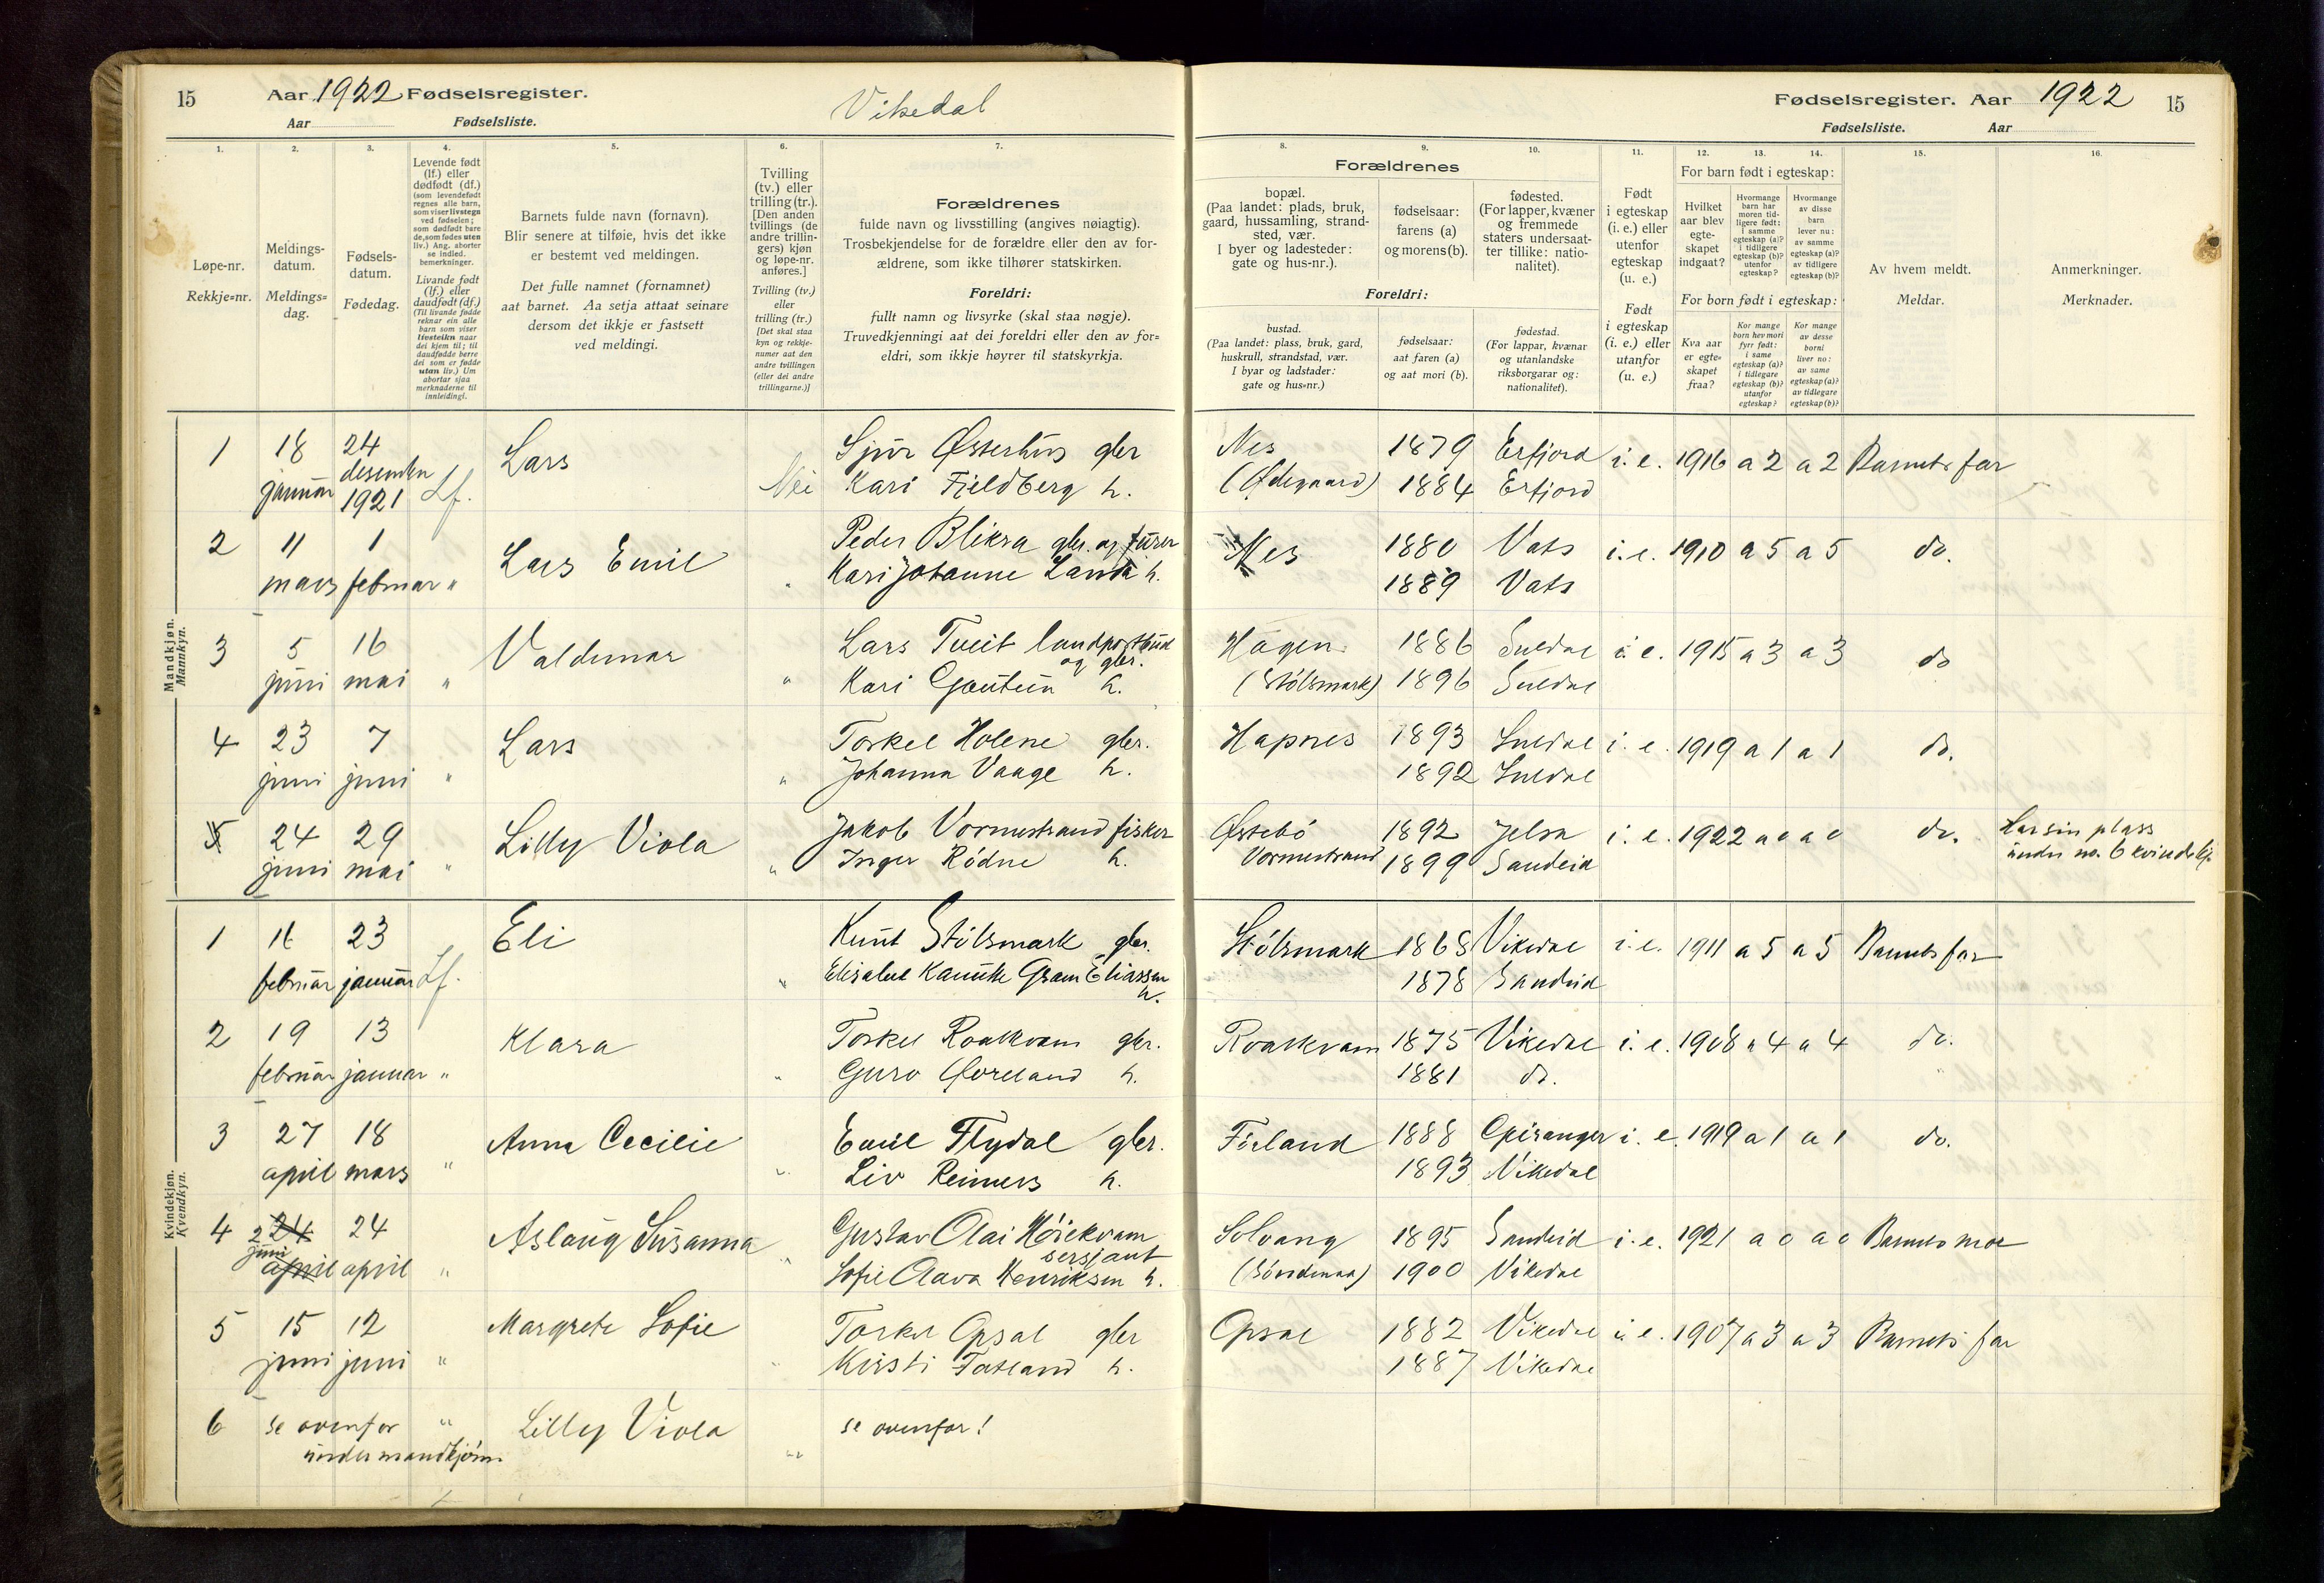 15 Aar 1922 Fødselsregister. Vikedal
Aar Fødselsliste.
Fødselsregister. Aar 1922 15
Fødselsliste. Aar
1. 2. 3. 4. 5. 6. 7.
Løpe-nr.
Rekkje=nr.
Meldings-
datum.
Meldings=
dag.
Fødsels-
datum.
Fødedag.
Levende født
(lf.) eller
dødfødt (df.)
(som levendefødt
regnes alle barn,
som viser livstegn
ved fødselen;
som dødfødt bare
de, som fødes uten
liv.) Ang. aborter
se indled.
bemerkninger.
Livande født
(lf.) eller
daudfødt (df.)
(Til livande fødde
reknar ein alle
barn som viser
livsteikn naar
dei kjem til; til
daudfødde berre
dei som er fødde
utan liv.) Um
abortar sjaa
merknaderne til
innleidingi.
Barnets fulde navn (fornavn).
Blir senere at tilføie, hvis det ikke
er bestemt ved meldingen.
Det fulle namnet (fornamnet)
aat barnet. Aa setja attaat seinare
dersom det ikkje er fastsett
ved meldingi.
Tvilling
(tv.) eller
trilling (tr.).
[Den anden
tvillings (de
andre trillin-
gers) kjøn
og løpe-nr.
anføres.]
Tvilling (tv.)
eller
trilling (tr.)
[Det skal staa
kyn og rekkje-
numer aat den
andre tvillingen
(eller dei andre
trillingarne.)]
Forældrenes
fulde navn og livsstilling (angives nøiagtig).
Trosbekjendelse for de forældre eller den av for-
ældrene, som ikke tilhører statskirken.
Foreldri:
fullt namn og livsyrke (skal staa nøgje).
Truvedkjenningi aat dei foreldri eller den av for=
eldri, som ikkje høyrer til statskyrkja.
8. 9. 10. 11. 12. 13. 14. 15. 16.
Forældrenes
bopæl.
(Paa landet: plads, bruk,
gaard, hussamling, strand-
sted, vær.
I byer og ladesteder:
gate og hus-nr.).
fødselsaar:
farens (a)
og morens (b).
fødested.
(For lapper, kvæner
og fremmede
staters undersaat-
ter tillike: natio-
nalitet).
Foreldri:
bustad.
(Paa landet: plass, bruk, gard,
huskrull, strandstad, vær.
I byar og ladstader:
gate og hus=nr.)
fødselsaar:
aat faren (a)
og aat mori (b).
fødestad.
(For lappar, kvænar
og utanlandske
riksborgarar og:
nationalitet).
Født
i egteskap
(i. e.) eller
utenfor
egteskap
(u. e.)
Født
i egteskap
(i. e.) eller
utanfor
(u. e.)
For barn født i egteskap:
Hvilket
aar blev
egte-
skapet
indgaat?
Hvormange
barn har
moren tid-
ligere født:
i samme
egteskap (a)?
i tidligere
egteskap (b)?
utenfor
egteskap?
Hvormange
av disse
barn
lever nu:
av samme
egteskap (a)?
av tidligere
egteskap (b)?
For born født i egteskap:
Kva aar
er egte=
skapet
fraa?
Kor mange
born hev mori
fyrr født:
i same
egteskap (a)?
i tidlegare
egteskap (b)?
utanfor
egteskap?
Kor mange
av desse
borni
liver no:
av same
egteskap (a)?
av tidlegare
egteskap (b)?
Av hvem meldt.
Meldar.
Anmerkninger.
Merknader.
Mandkjøn.
Mannkyn.
1 18 24 Lars Sjur Østerhus gbr Nes 1879 Erfjord i. e. 1916 a 2 a 2 Barnets far
januar desember 1921 Lf. Nei Kari Fjeldberg h. (Ødegaard) 1884 Erfjord
2 11 1 Lars Emil Peder Blikra gbr. og fürer Nes 1880 Vats i. e. 1910 a 5 a 5 do.
mars februar " " Kari Johanne Landa h. 1889 Vats
3 5 16 Valdemar Lars Tveit landpostbud Hagen 1886 Suldal i. e. 1915 a 3 a 3 do
og gbr.
juni mai " " Kari Gautun h. (Stölsmark) 1896 Suldal
4 23 7 Lars Torkel Holene gbr. Hapnes 1893 Suldal i. e. 1919 a 1 a 1 do.
juni juni " " Johanna Vaage h. 1892 Suldal
5 24 29 Lilly Viola Jakob Vormestrand fisker Østebö 1892 Jelsa i. e. 1922 a o a o do. Har sin plass
juni mai " " Inger Rödne h. Vormestrand 1899 Sandeid under no. 6 kvindekj.
Kvindekjøn.
Kvendkyn.
1 16 23 Eli Knut Stölsmark gbr. Stölsmark 1868 Vikedal i. e. 1911 a 5 a 5 Barnets far
februar januar Lf. " Elisabet Kamilla Gram Eliassen 1878 Sandeid
h.
2 19 13 Klara Torkel Roalkvam gbr. Roalkvam 1875 Vikedal i. e. 1908 a 4 a 4 do.
februar januar " " Guro Øveland h. 1881 do.
3 27 18 Anna Cecilie Emil Flydal gbr. Förland 1888 i. e. 1919 a 1 a 1 do.
april mars " " Liv Reimers h. 1893 Vikedal
4 2 24 24 Aslaug Susanna Gustav Olai Höiekvam Solvang 1895 Sandeid i. e. 1921 a o a o Barnets mor
juni sersjant
april april " " Sofie Olava Henriksen h. 1900 Vikedal
5 15 12 Margrete Sofie Torkel Opsal gbr Opsal 1882 Vikedal i. e. 1907 a 3 a 3 Barnets far
juni juni " Kirsti Fatland h. 1887 Vikedal
6 se ovenfor " Lilly Viola se ovenfor!
under mandkjön. "